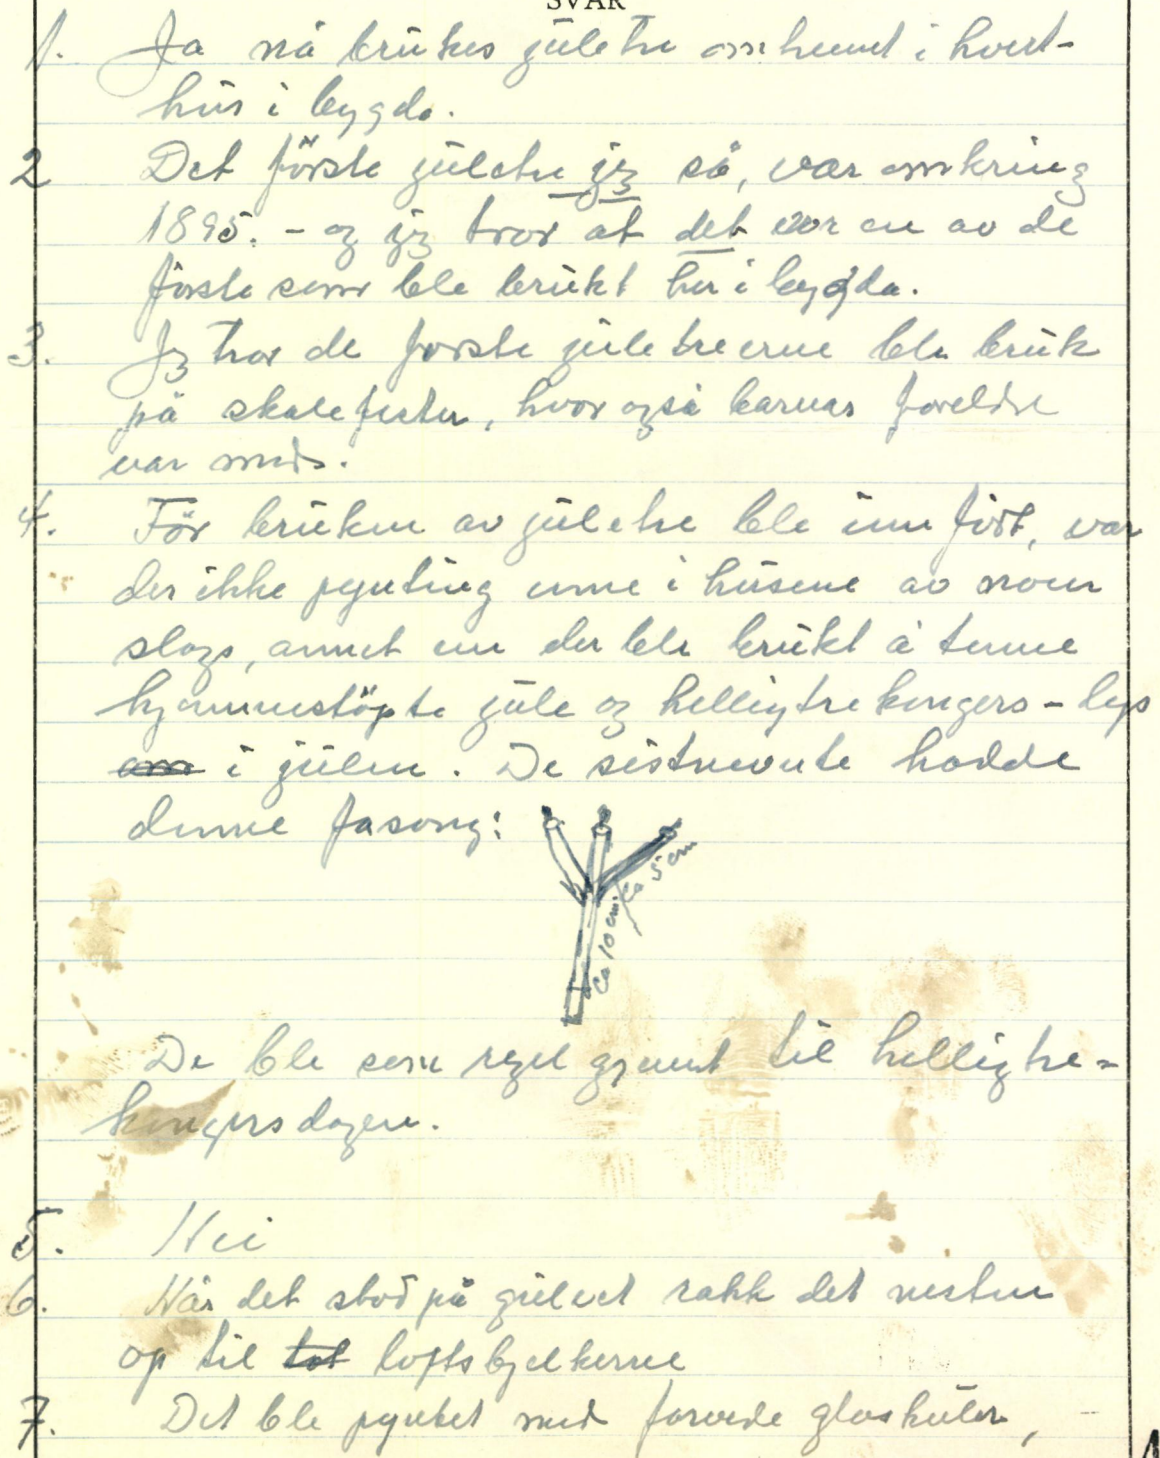 SVAR
1. Ja nå brukes juletre omtrent i hvert-
hus i bygda.
2 Det første juletre jeg så, var omkring
1895. - og jeg tror at det var en av de
første som ble brukt her i bygda.
3. Jeg tror de første juletreerne ble bruk
på skolefester, hvor også barnas foreldre
var med.
4. Før bruken av juletre ble innført, var
der ikke pynting inne i husene av noen
slags, annet enn der ble brukt å tenne
hjemmestöpte jule og helligtrekongers - lys
om i julen. De sistnevnte hadde
denne fasong:
ca 5 cm
ca 10 cm.
De ble som regel gjemt til helligtre-
kongersdagen.
5. Nei
6. Når det stod på gulvet rakk det nesten
op til tat loftsbjelkerne
7. Det ble pyntet med farvede glaskuler,